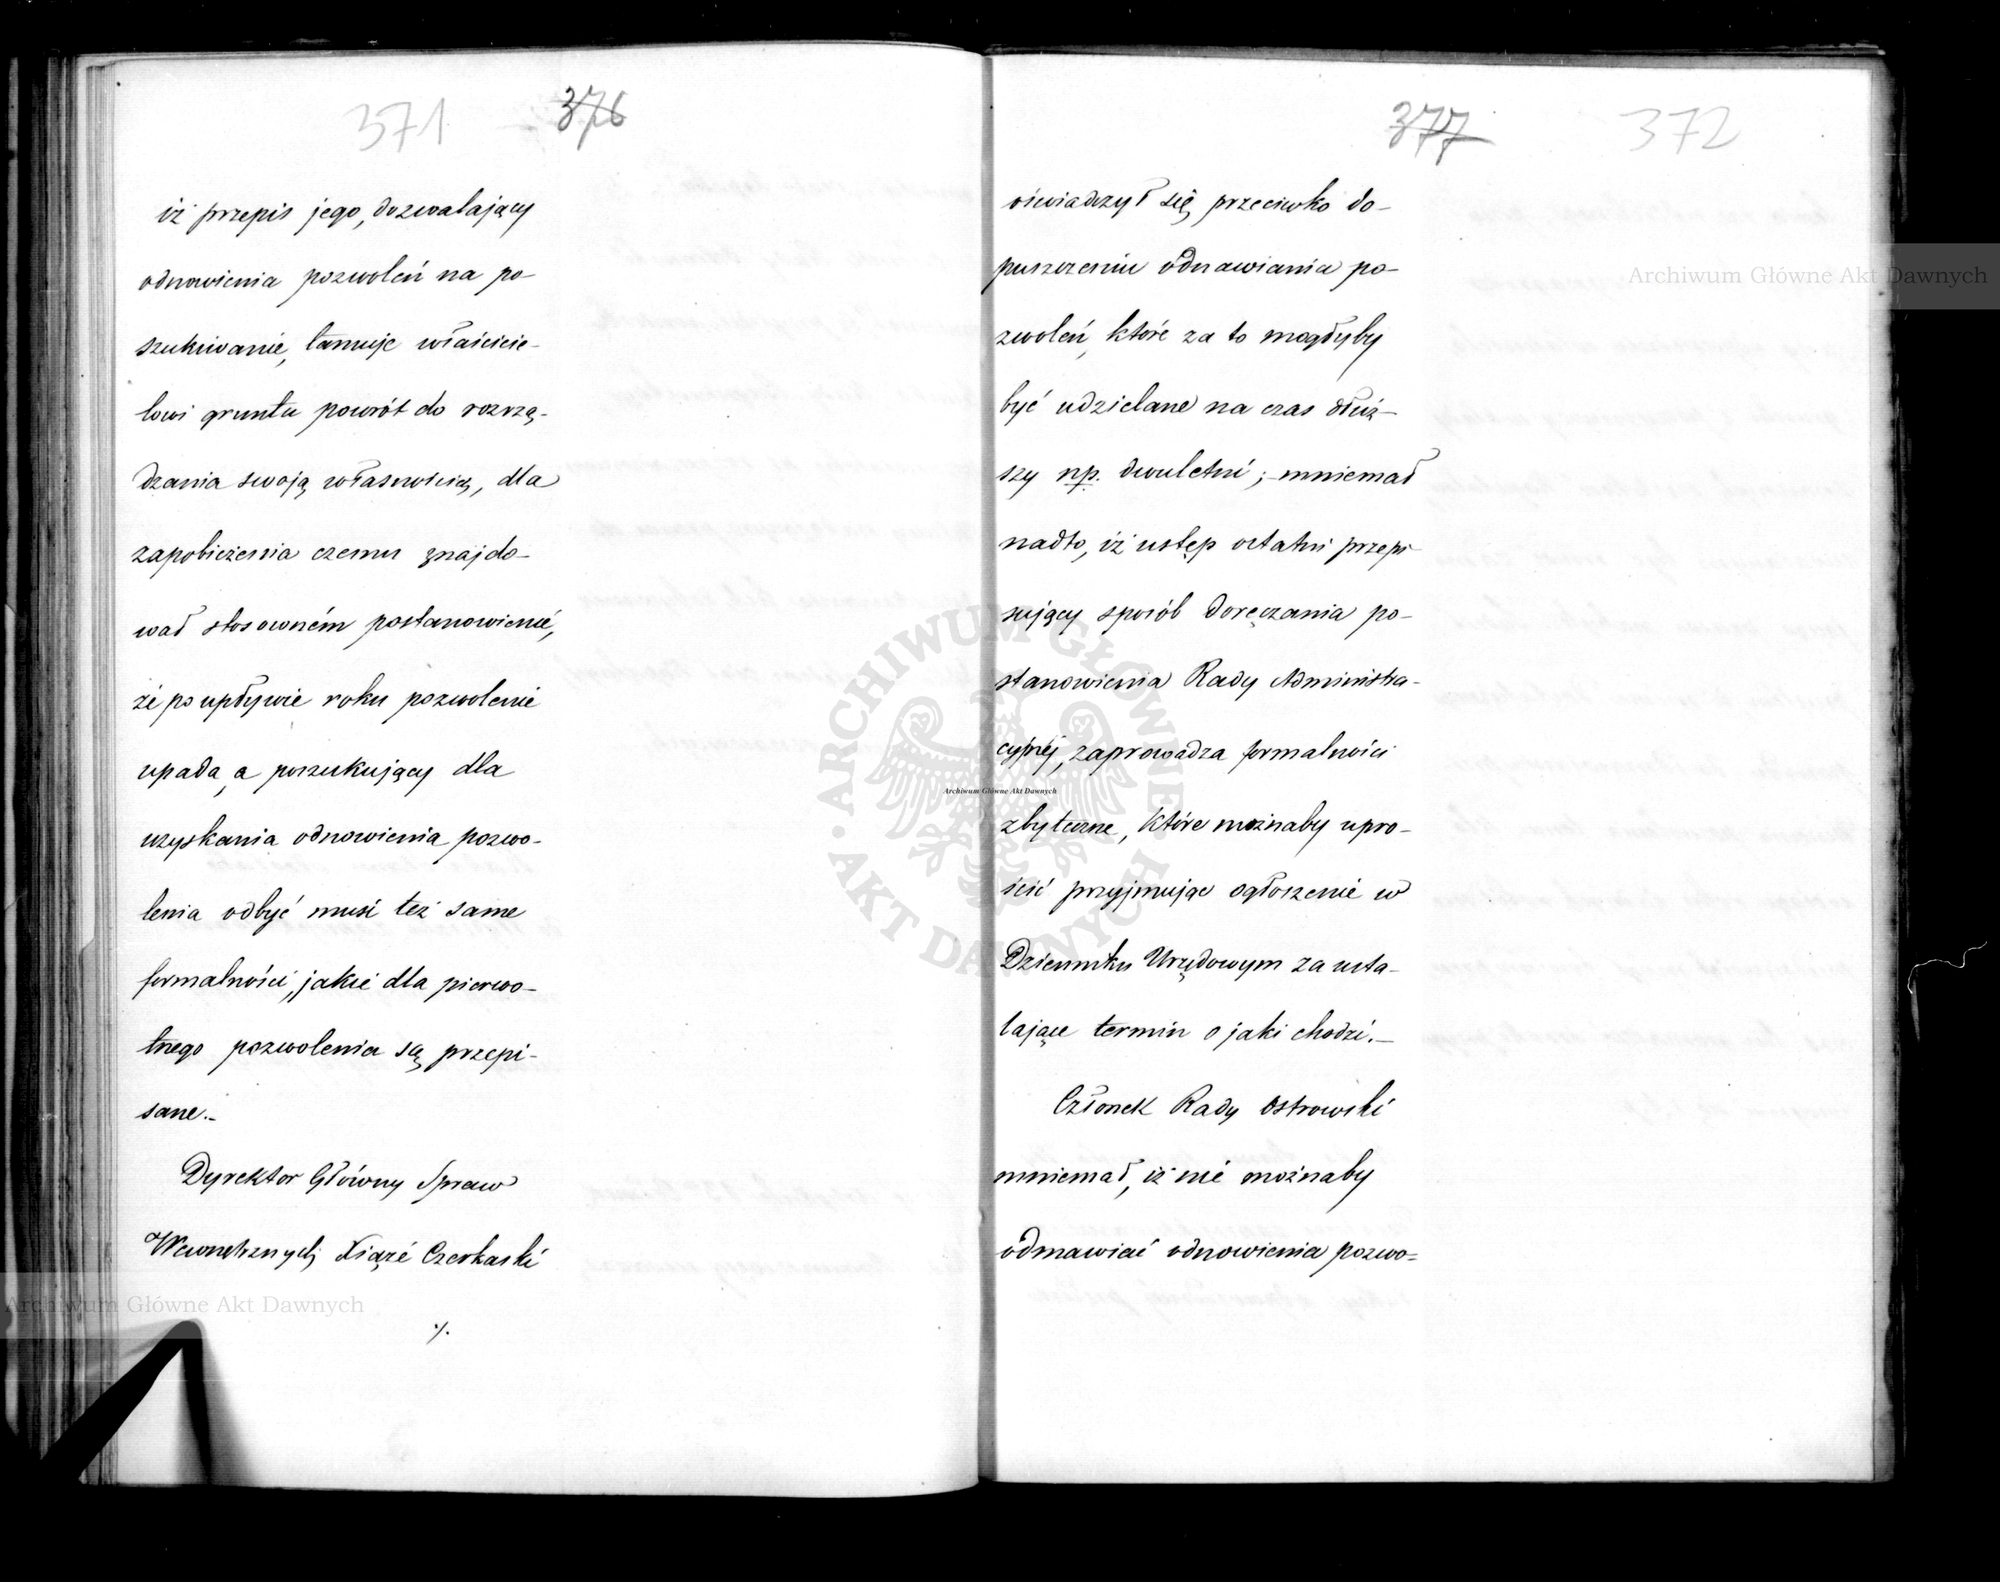 371 376
iż przepis jego, dozwalający
odnowienia pozwoleń na po-
szukiwanie, tamuje właścicie-
lowi gruntu powrót do rozrzą-
dzania swoją własnością, dla
zapobieżenia czemu znajdo-
wał stosowném postanowienie,
że po upływie roku pozwolenie
upada, a poszukujący dla
uzyskania odnowienia pozwo-
lenia odbyć musi też same
formalności, jakie dla pierwo-
tnego pozwolenia są przepi-
sane.-
Dyrektor Główny Spraw
Wewnętrznych Xiąże Czerkaski
./.
377 372
oświadczył się przeciwko do-
puszczeniu odnawiania po-
zwoleń, które za to mogłyby
być udzielane na czas dłuż-
szy np. dwuletni; mniemał
nadto, iż ustęp ostatni przepi-
sujący sposób doręczania po-
stanowienia Rady Administra-
cyjnéj, zaprowadza formalności
zbyteczne, które możnaby upro-
ścić przyjmując ogłoszenie w
Dzienniku Urzędowym za usta-
lające termin o jaki chodzi.-
Członek Rady Ostrowski
mniemał, iż nie możnaby
odmawiać odnowienia pozwo=
Archiwum Główne Akt Dawnych
Archiwum Główne Akt Dawnych
Archiwum Główne Akt Dawnych
ARCHIWUM GŁÓWNE AKT DAWNYCH